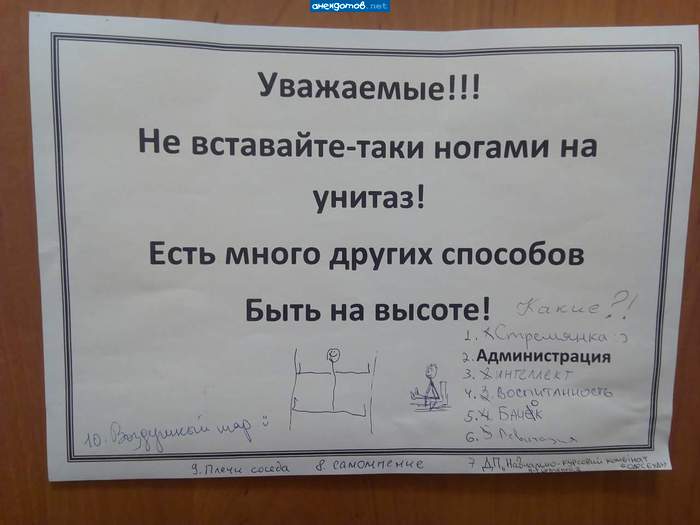 анекдотов.net
Уважаемые!!!
Не вставайте-таки ногами на
унитаз!
Есть много других способов
Быть на высоте!
Какие?!
1. Стремянка :)
2. Администрация
3. интеллект
4. воспитанность
5.
6. Левитация
7 ДП „Навчально-курсовий комбінат
8. самомнение
9. Плечи соседа
10. Воздушный шар :)